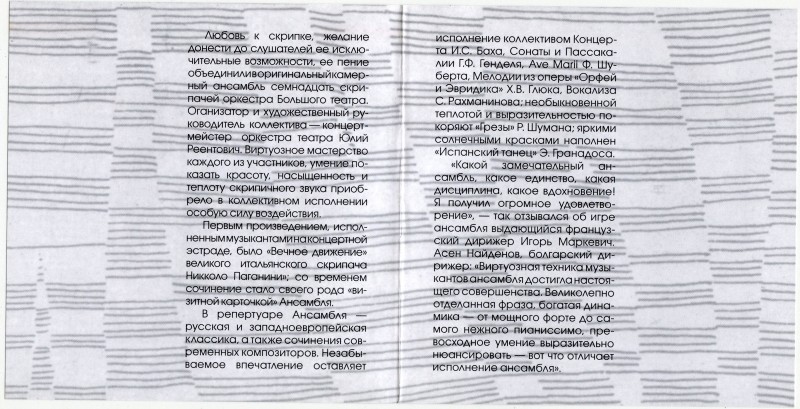 Любовь к скрипке, желание
донести до слушателей ее исклю-
чительные возможности, ее пение
объединили в оригинальный камер-
ный ансамбль семнадцать скри-
пачей оркестра Большого театра.
Оганизатор и художественный ру-
ководитель коллектива — концерт-
мейстер оркестра театра Юлий
Реентович. Виртуозное мастерство
каждого из участников, умение по-
казать красоту, насыщенность и
теплоту скрипичного звука приоб-
рело в коллективном исполнении
особую силу воздействия.
Первым произведением, испол-
ненным музыкантами на концертной
эстраде, было «Вечное движение»
великого итальянского скрипача
Никколо Паганини»; со временем
сочинение стало своего рода «ви-
зитной карточкой» Ансамбля.
В репертуаре Ансамбля —
русская и западноевропейская
классика, а также сочинения сов-
ременных композиторов. Незабы-
ваемое впечатление оставляет
исполнение коллективом Концер-
та И.С. Баха, Сонаты и Пассака-
лии Г.Ф. Генделя, Ave Marii Ф. Шу-
берта, Мелодии из оперы «Орфей
и Эвридика» Х.В. Глюка, Вокализа
С. Рахманинова; необыкновенной
теплотой и выразительностью по-
коряют «Грезы» Р. Шумана; яркими
солнечными красками наполнен
«Испанский танец» Э. Гранадоса.
«Какой замечательный ан-
самбль, какое единство, какая
дисциплина, какое вдохновение!
Я получил огромное удовлетво-
рение», — так отзывался об игре
ансамбля выдающийся француз-
ский дирижер Игорь Маркевич.
Асен Найденов, болгарский ди-
рижер: «Виртуозная техника музы-
кантов ансамбля достигла настоя-
щего совершенства. Великолепно
отделанная фраза, богатая дина-
мика — от мощного форте до са-
мого нежного пианиссимо, пре-
восходное умение выразительно
нюансировать — вот что отличает
исполнение ансамбля».